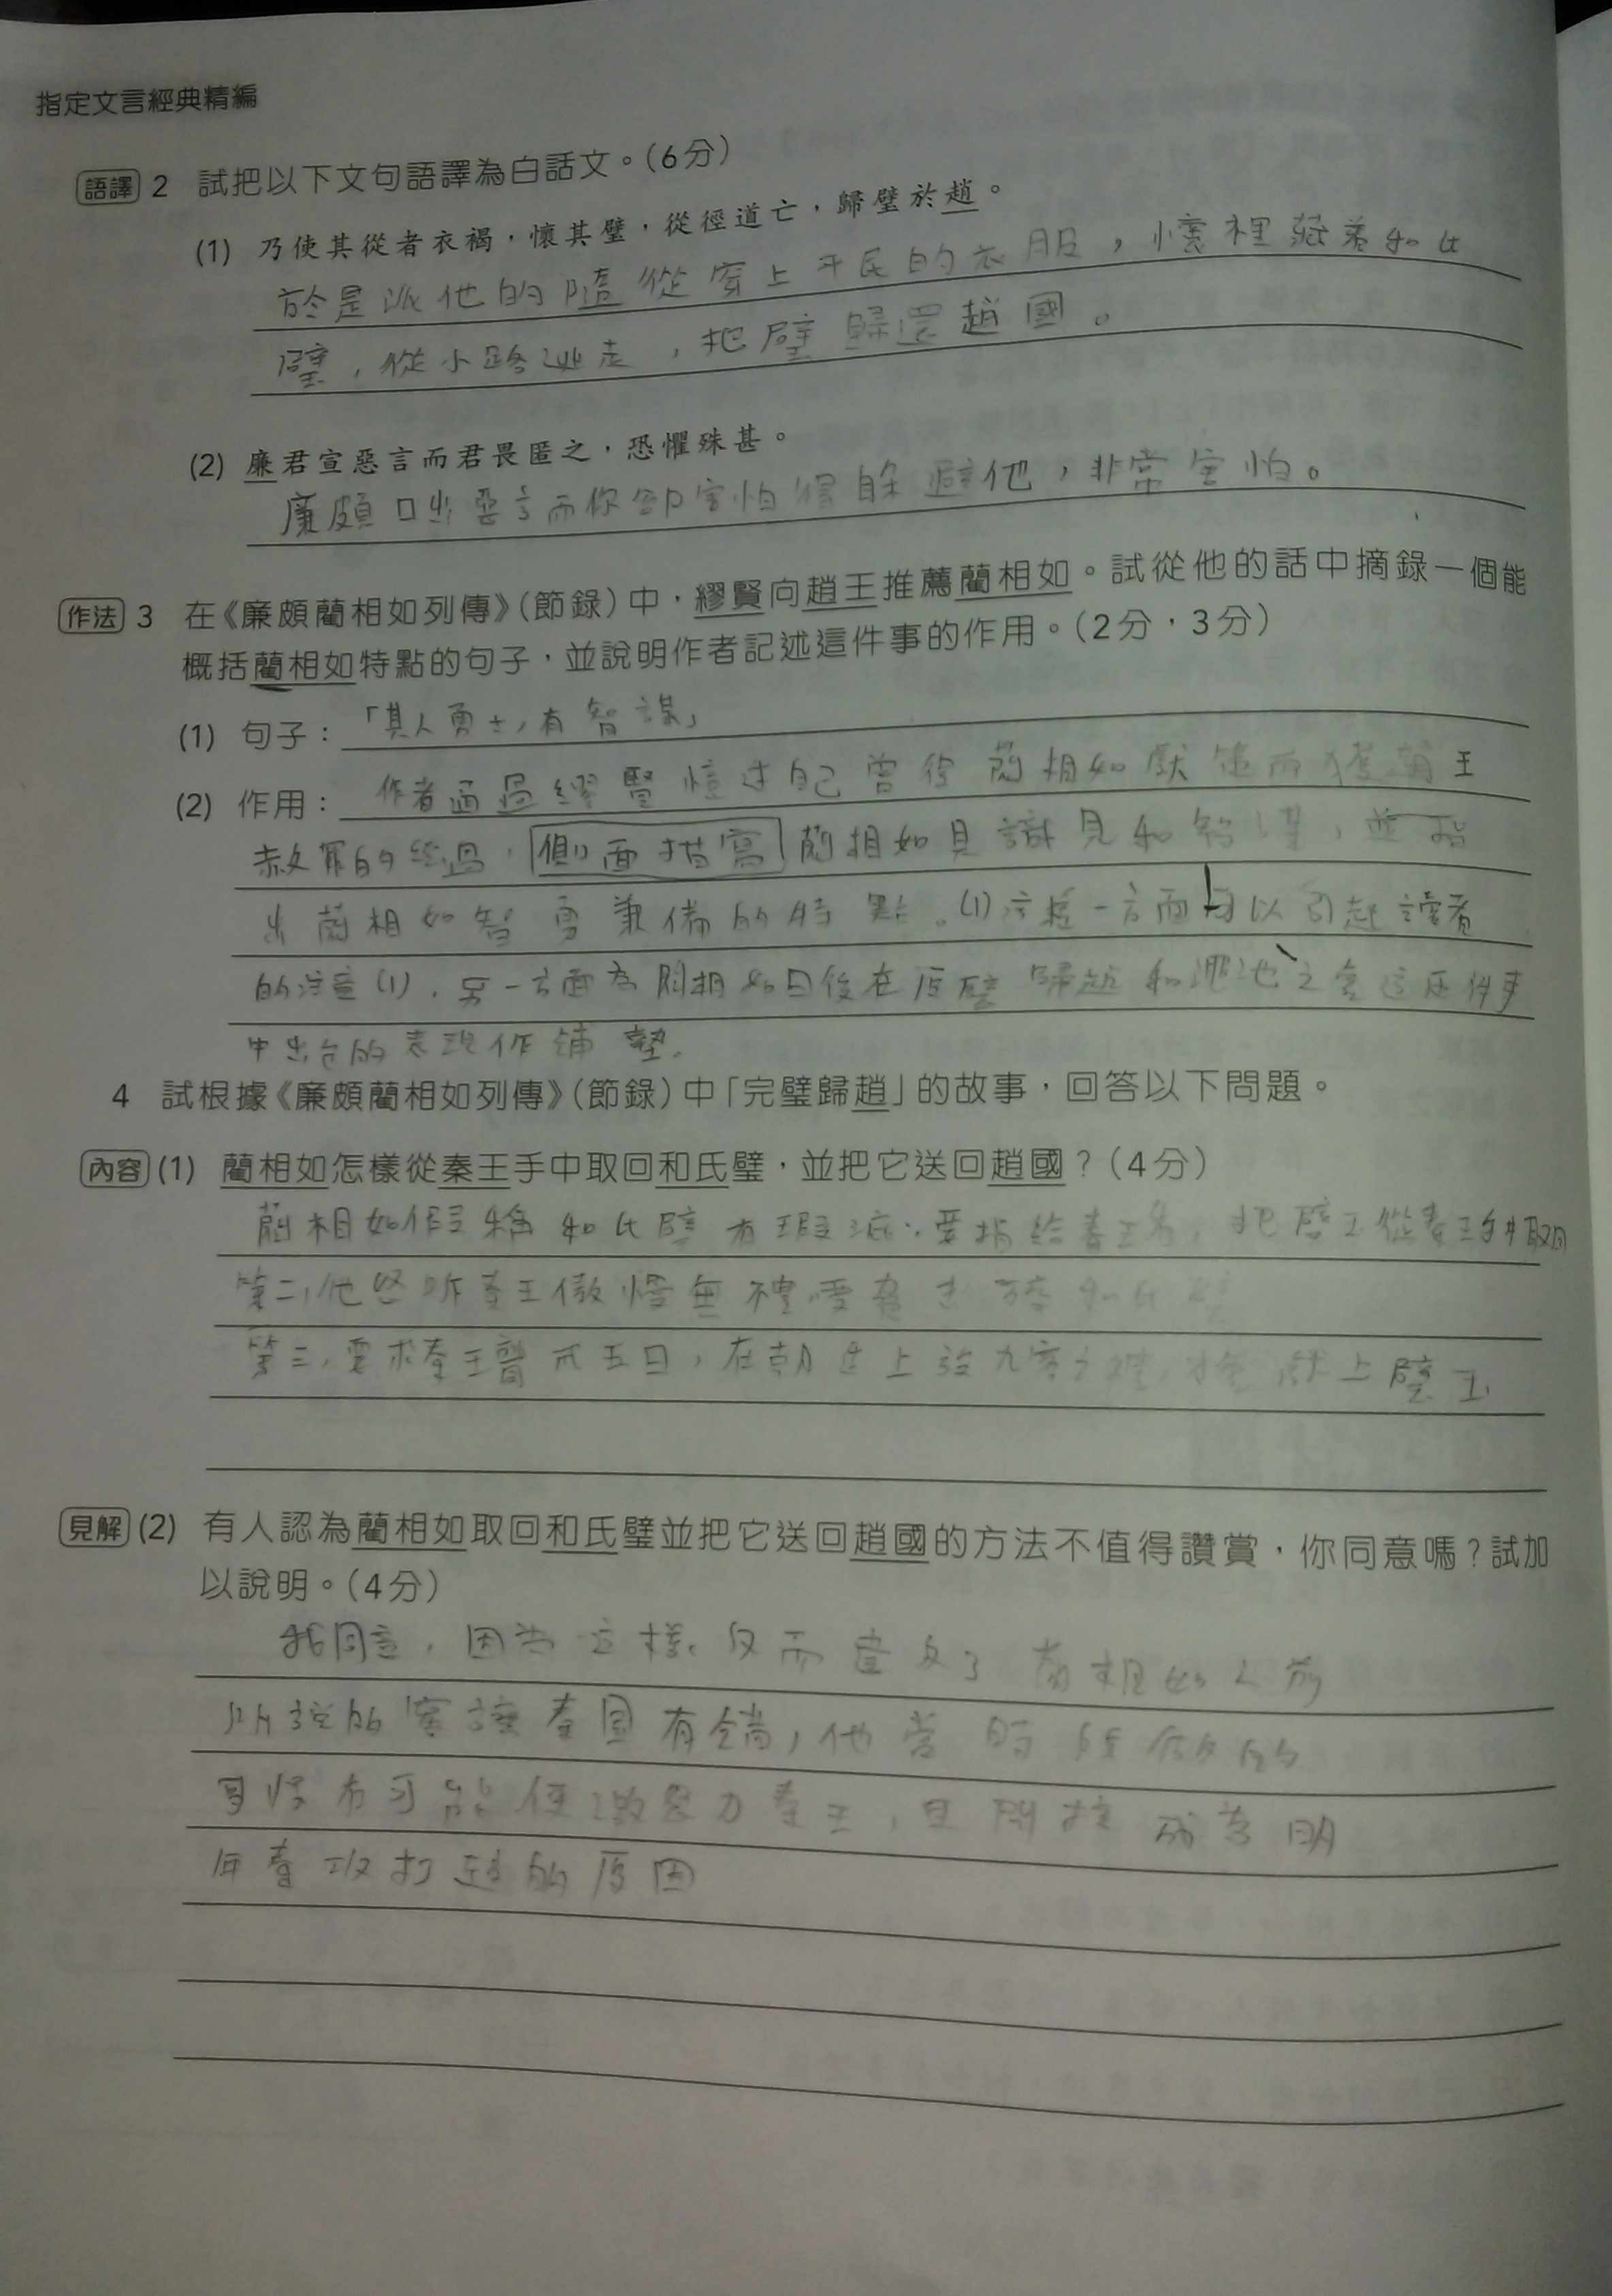 指定文言經典精編
語譯 2 試把以下文句語譯為白話文。(6分)
(1) 乃使其從者衣褐，懷其璧，從徑道亡，歸璧於趙。
於是派他的隨從穿上平民的衣服，懷裡藏着和氏
璧，從小路逃走，把璧歸還趙國。
(2) 廉君宣惡言而君畏匿之，恐懼殊甚。
廉頗口出惡言而你卻害怕得躲避他，非常害怕。
作法 3 在《廉頗藺相如列傳》(節錄)中，繆賢向趙王推薦藺相如。試從他的話中摘錄一個能
概括藺相如特點的句子，並說明作者記述這件事的作用。(2分，3分)
(1) 句子：「其人勇士，有智謀」
(2) 作用：作者通過繆賢憶述自己曾得藺相如獻策而獲趙王
赦罪的經過，側面描寫藺相如具識見和智謀，並指
出藺相如智勇兼備的特點。(1)這樣一方面可以引起讀者
的注意(1)，另一方面為藺相如日後在完璧歸趙和澠池之會這兩件事
中出色的表現作鋪墊。
4 試根據《廉頗藺相如列傳》(節錄)中「完璧歸趙」的故事，回答以下問題。
內容 (1) 藺相如怎樣從秦王手中取回和氏璧，並把它送回趙國？(4分)
藺相如假稱和氏璧有瑕疵，要指給秦王看，把璧玉從秦王手中取回
第二，他怒斥秦王傲慢無禮，要脅去碎和氏璧
第三，要求秦王齋戒五日，在朝廷上設九賓之禮，才獻上璧玉
見解 (2) 有人認為藺相如取回和氏璧並把它送回趙國的方法不值得讚賞，你同意嗎？試加
以說明。(4分)
我同意，因為這樣反而違反了藺相如之前
所說的寧讓秦國有錯，他當時所做的
有可能使激怒秦王，且間接成為明
年秦攻打趙的原因